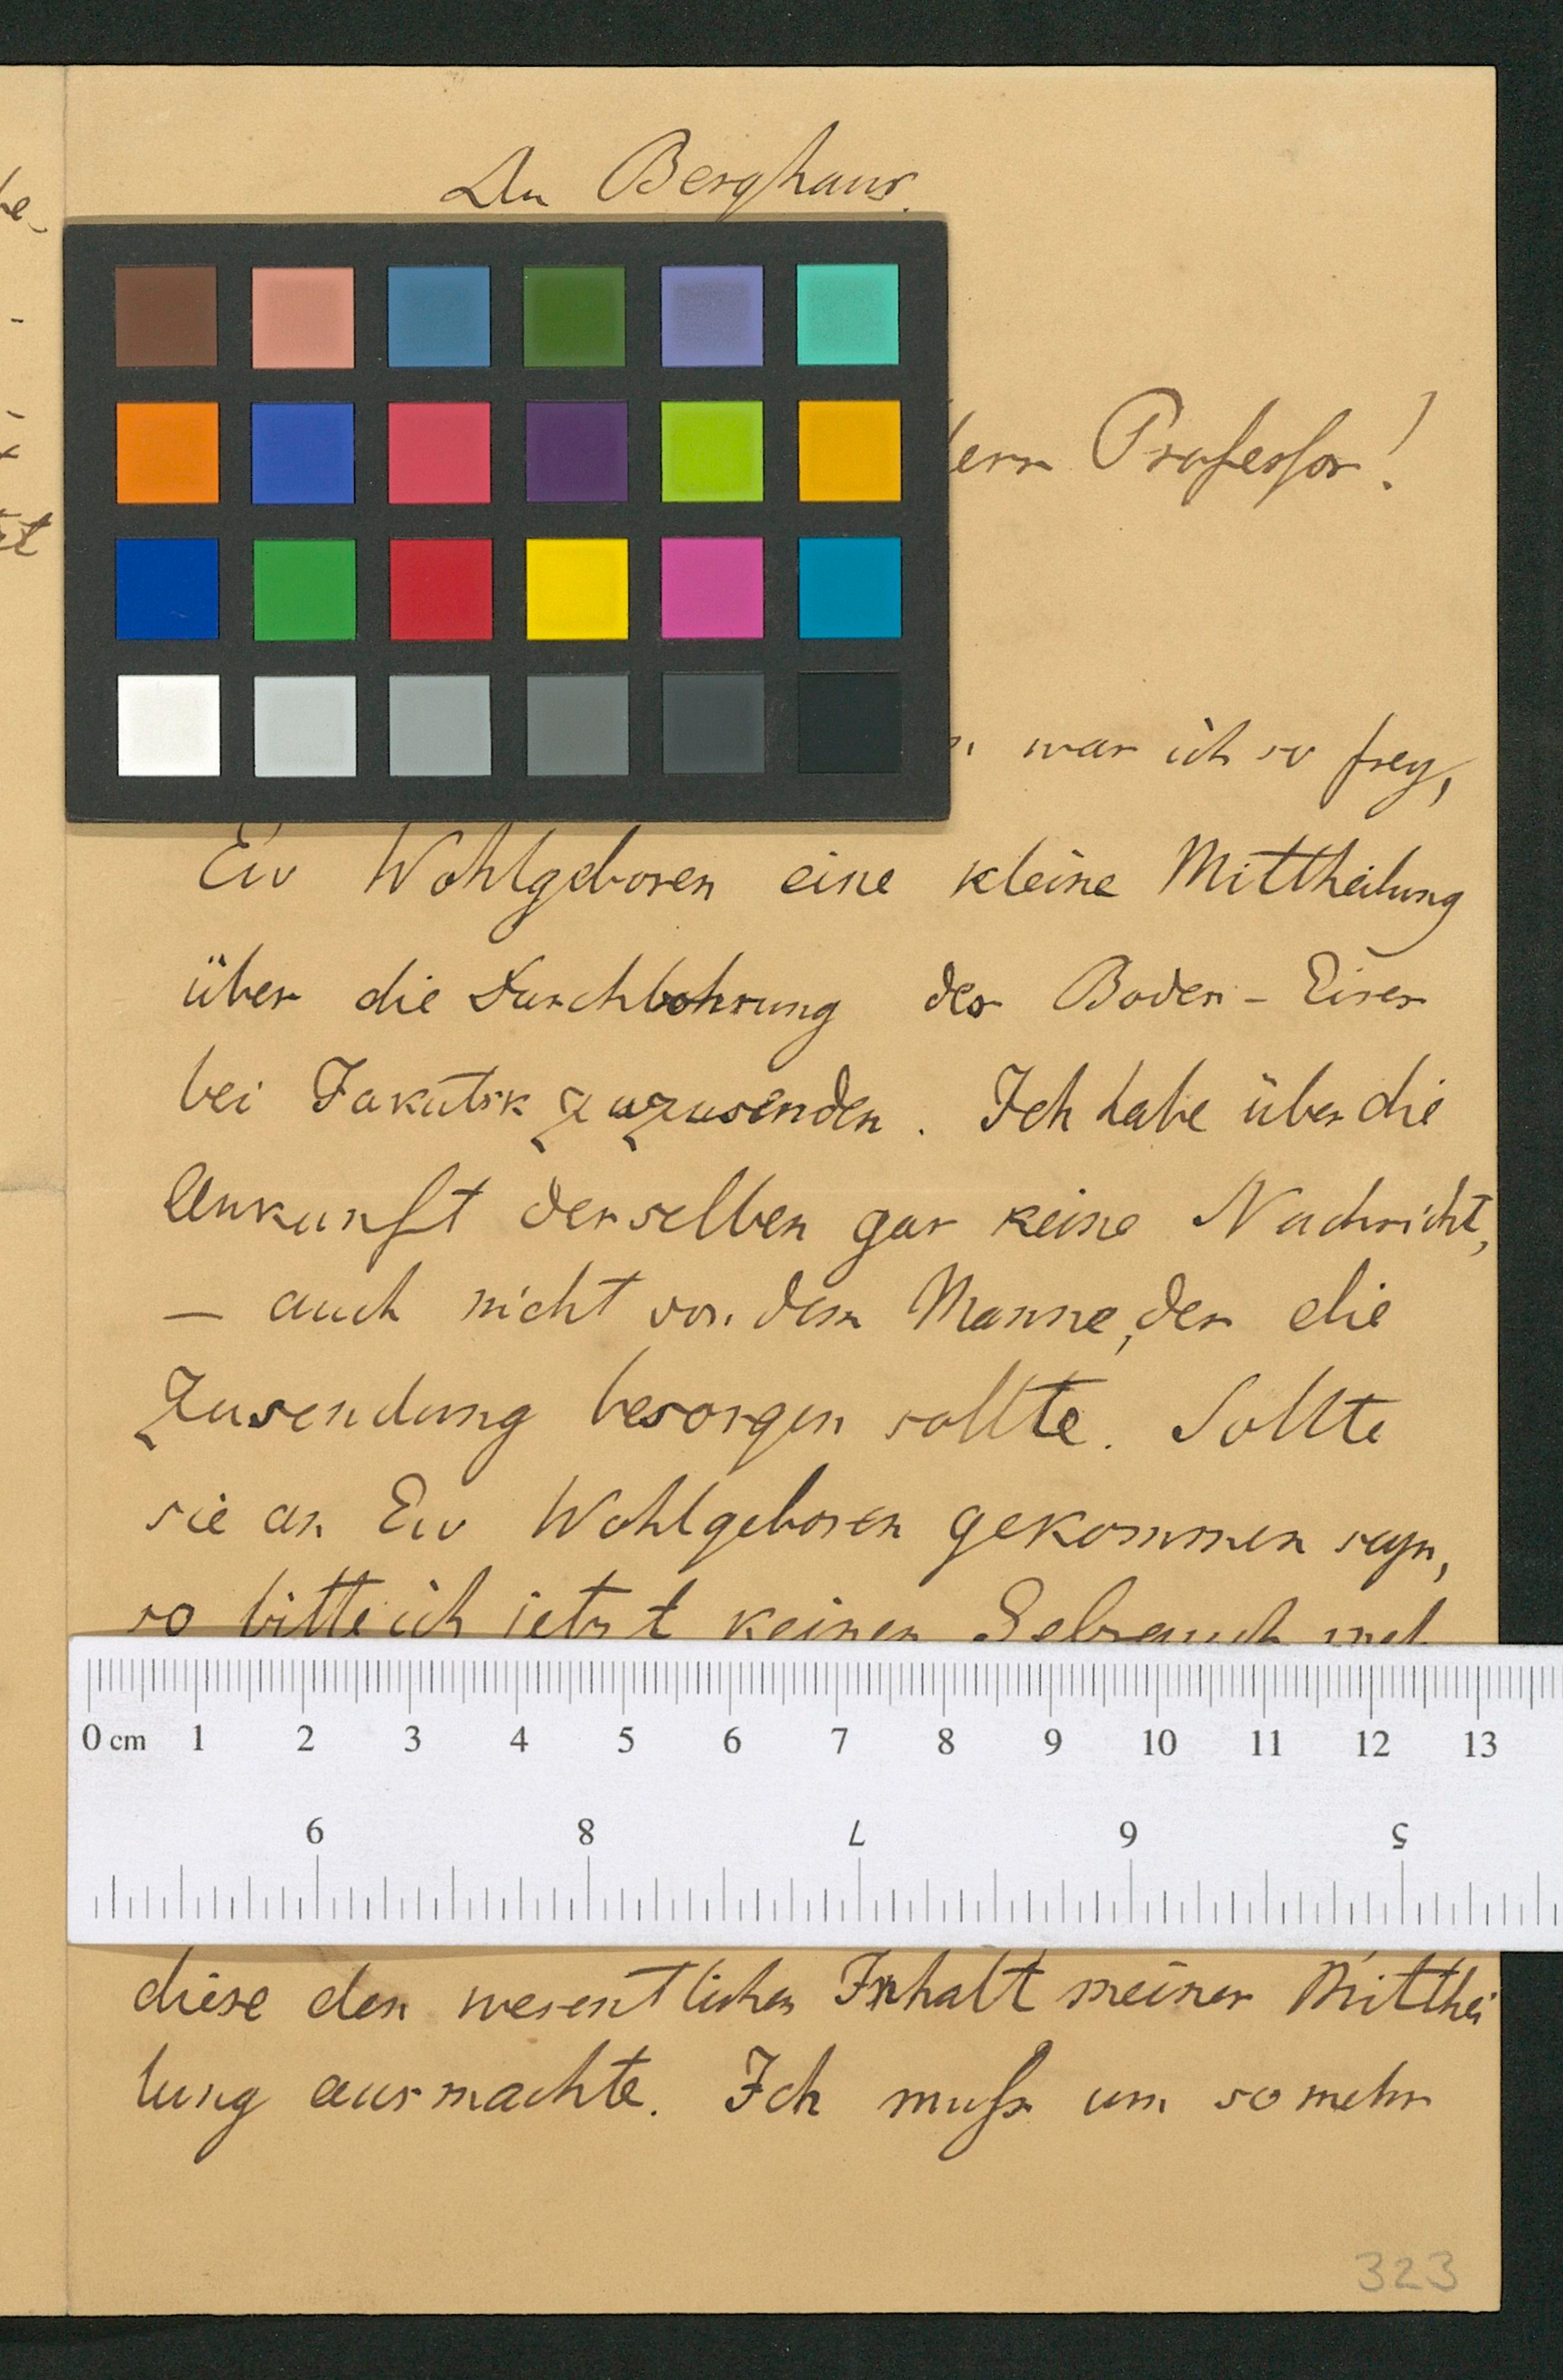 An Berghaus.
Professor!
war ich so frey,
Ew Wohlgeboren eine kleine Mittheilung
über die Durchbohrung des Boden-Eises
bei Jakutsk zuzusenden. Ich habe über die
Ankunft derselben gar keine Nachricht,
— auch nicht von dem Manne, der die
Zusendung besorgen sollte. Sollte
sie an Ew Wohlgeboren gekommen seyn,
so bitte ich jetzt keinen Gebrauch
0 cm 1 2 3 4 5 6 7 8 9 10 11 12 13
9 8 7 6 5
diese den wesentlichen Inhalt meiner Mitthei
lung ausmachte. Ich muss um so mehr
323